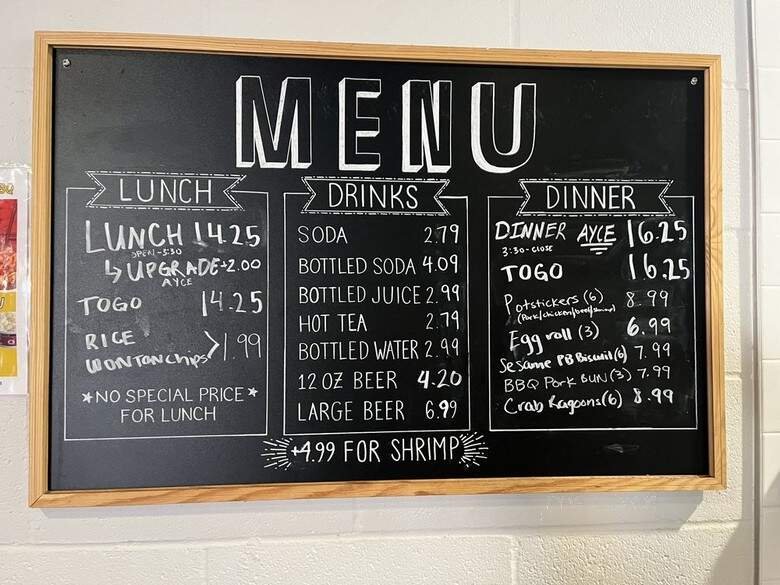 MENU
LUNCH
LUNCH 14.25
OPEN-3:30
↳ UPGRADE +2.00
AYCE
TOGO 14.25
RICE
WONTON Chips > 1.99
*NO SPECIAL PRICE*
FOR LUNCH
DRINKS
SODA 2.79
BOTTLED SODA 4.09
BOTTLED JUICE 2.99
HOT TEA 2.79
BOTTLED WATER 2.99
12 OZ BEER 4.20
LARGE BEER 6.99
DINNER
DINNER AYCE 16.25
3:30-CLOSE
TOGO 16.25
Potstickers (6) 8.99
(Pork/chicken/beef/shrimp)
Egg roll (3) 6.99
Sesame PB Biscuit (6) 7.99
BBQ Pork BUN (3) 7.99
Crab Ragoons (6) 8.99
+4.99 FOR SHRIMP